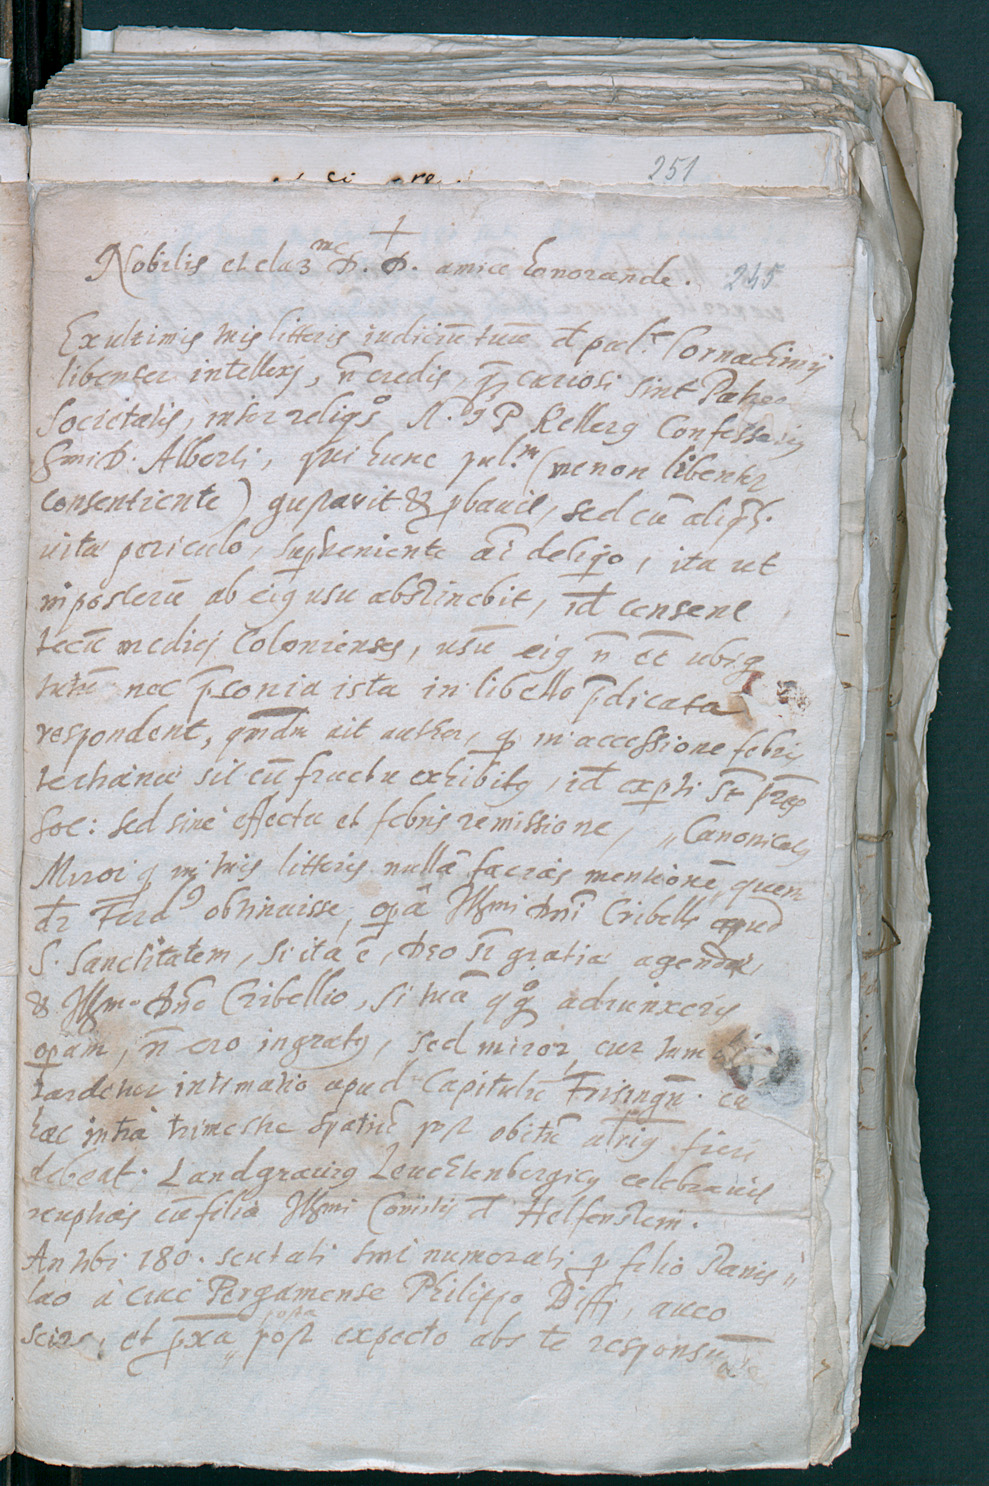 251
Nobilis et clariss.me D. D. amice honorande.
245
Ex ultimis tuis litteris iudiciū tuū d pul.e Cornachinij
libenter intellexj, n̄ credis, q̄ curiosi sint Patres
Societatis, inter religs R. P. Kellerg Confessarig
Smi D. Alberti, qui hunc pul.m (me non libenter
consentiente) gustavit & pbavit, sed cū aliq.
vitæ periculo, supveniente aī deliqo, ita ut
imposterū ab eig usu abstinebit, id censent
tecū medicj Colonienses, usū eig n̄ eē ubig
tutū nec pconia ista in libello pdicata
respondent, qmdm ait author, q in accessione febris
tertianæ sit cū fructu exhibitg, id expti st
hoc: sed sine effectu et febris remissione, „Canonicatg
Miror q in tuis litteris nullā facias mentionē, quem
dr Ferd obtinuisse, opâ Illmi Dnī Cribelli apud
S. Sanctitatem, si ita ē, Deo st gratiæ agendæ,
& Illmo Dno Cribellio, si tuā qq adiunxeris
opam, n̄ ero ingratg, sed miror, cur tum
tardetur intimatio apud Capitulū Frisingn. cū
hæc intra trimestre spatiū post obitū fieri
debeat. Landgravig Leuchtenbergicg celebravit
nuptias cū filia Illmi Comitis d Helfenstein.
An tibi 180. scutati sint numerati p filio Stanis„
lao à cive Pergamense Philippo Diffi, aveo
scire, et pxa„ post expecto abs te responsum
posta